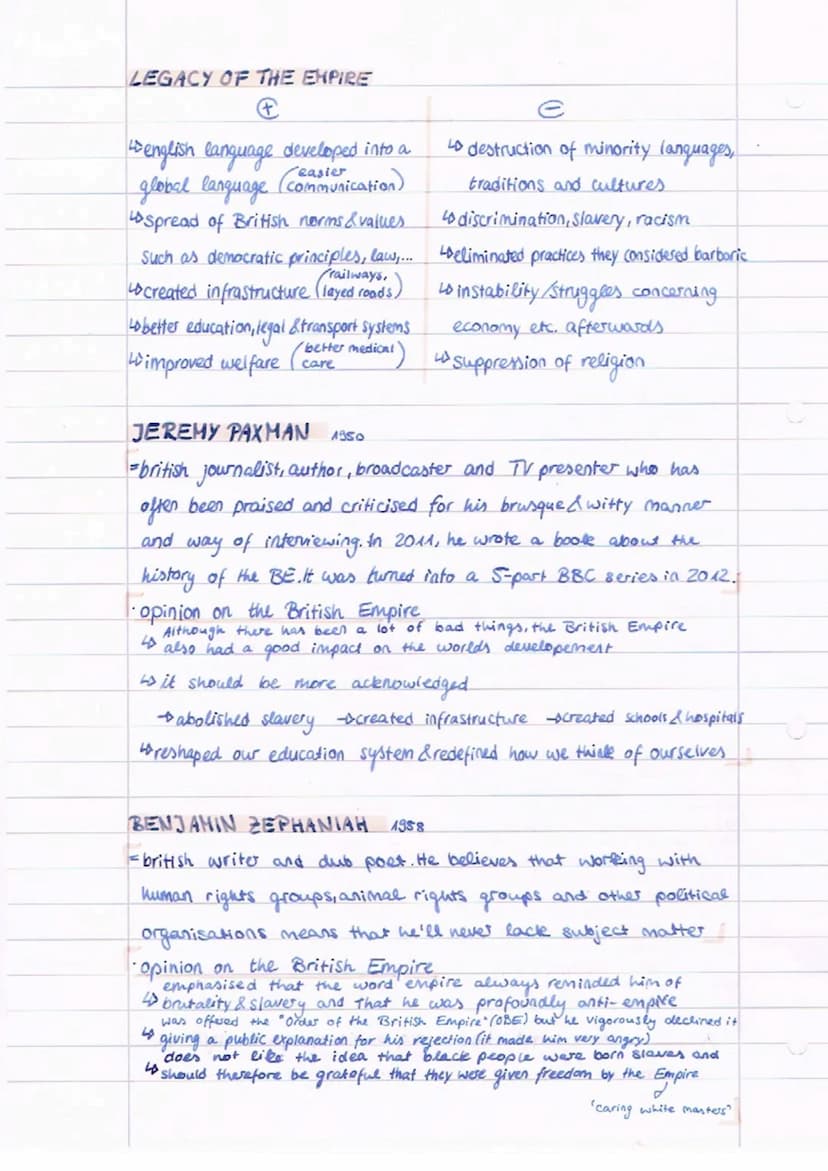 LEGACY OF THE EMPIRE
⊕
↳ english language developed into a
global language (easier communication)
↳ Spread of British norms & values
such as democratic principles, law,...
↳ created infrastructure (railways, layed roads)
↳ better education, legal & transport systems
↳ improved welfare (better medical care)
⊖
↳ destruction of minority languages,
traditions and cultures
↳ discrimination, slavery, racism
↳ eliminated practices they considered barbaric
↳ instability/struggles concerning
economy etc. afterwards
↳ suppression of religion
JEREMY PAXMAN 1950
= british journalist, author, broadcaster and TV presenter who has
often been praised and criticised for his brusque & witty manner
and way of interviewing. In 2011, he wrote a book about the
history of the BE. It was turned into a 5-part BBC series in 2012.
· opinion on the British Empire
Although there has been a lot of bad things, the British Empire
↳ also had a good impact on the worlds developement
↳ it should be more acknowledged
→ abolished slavery → created infrastructure → created schools & hospitals
↳ reshaped our education system & redefined how we think of ourselves
BENJAMIN ZEPHANIAH 1958
= british writer and dub poet. He believes that working with
human rights groups, animal rights groups and other political
organisations means that he'll never lack subject matter
· opinion on the British Empire
emphasised that the word empire always reminded him of
↳ brutality & slavery and that he was profoundly anti-empire
was offered the "Order of the British Empire" (OBE) but he vigorously declined it
↳ giving a public explanation for his rejection (it made him very angry)
does not like the idea that black people were born slaves and
↳ should therefore be grateful that they were given freedom by the Empire
'caring white masters'